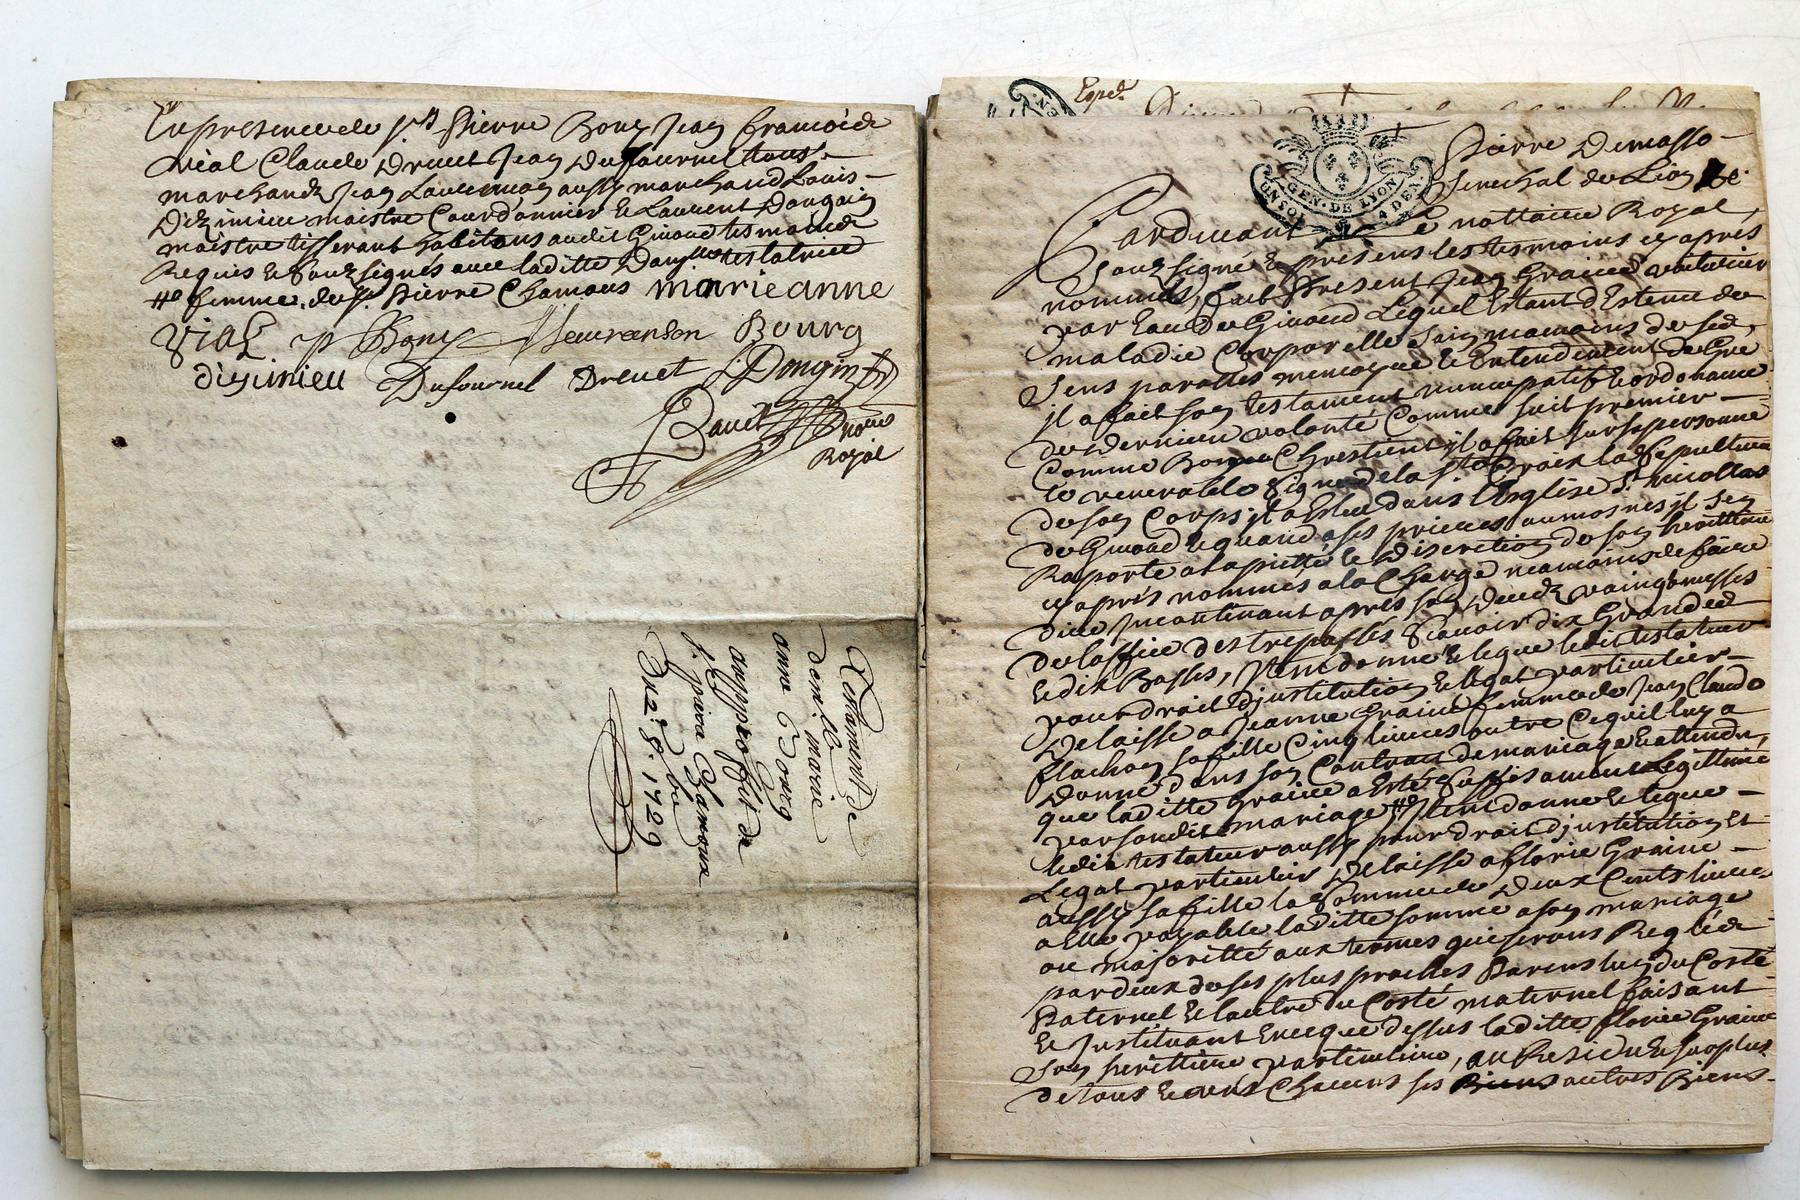 En presence de s.rs Pierre Bony Jean François
Vial Claude Drevet Jean Dufournel tous
marchands Jean Laurenson aussy marchand Louis
Dizimieu maistre Cordonnier & Laurent Dongin
maistre tisserant habitans audit Givord tesmoins
Requis & souzsignés avec laditte Dam.lle testatrice
femme du s.r Pierre Chamous marie anne
Vial p Bony J laurenson Bourg
disimieu Dufournel Drevet L Dongin
no.re
Royal
Testament de
dem.lle marie
anne Bourg
au proffit de
s. piere Chamoux
1729
Exped.
Pierre Demasso
Senechal de Lion
GEN. DE LYON
UN SOL
4 DEN
Pardevant le nottaire Royal
Souzsigné & presens les tesmoins cy apres
nommés, fut Present Jean Graine voiturier
par Eau de Givord Lequel Estant d'Estenu de
maladie Corporelle Sain neamoins de ses
Sens parolles memoyre & Entendement de Gre
jl a fait son testament nuncupatif & ordonance
de derniere volonté Comme suit premier
Comme Bon Chrestient jl a fait sur sa personne
le venerable Signe de la s.te Croix la Sepulture
de son Corps jl a Esleu dans l'Esglise S.t nicollas
de Givord & quand a ses prieres aumosnes jl s'en
Raporte a la pietté & Discretion de son herittiere
cy apres nommés a la Charge neamoins de faire
dire jncontinant apres son deceds vaingt messes
de l'office des trepassés Scavoir dix Grandes
& dix Basses, Jtem donne & legue ledit testateur
pour droit d'justitution & legat particulier
Delaisse a Jeanne Graine femme de Jean Claude
flachon sa fille Cinq livres outre Ce quil luy a
Donné dans son Contrat de mariage & attendu
que laditte Graine a Esté Suffisament Legittimé
par sondit mariage Jtem donne & legue
ledit testateur aussy pour droit d'justitution et
Legat particulier Delaisse a florie Graine
aussy sa fille la Somme de Deux Cents livres
a Elle payable laditte somme a son mariage
ou majoritté aux termes qui seront Reglés
par deux de ses plus proches Parens lun du Costé
Paternel & lautre du Costé maternel faisant
& Justituant En ce que dessus laditte florie Graine
Son herittiere particuliere, au Residu & surplus
de tous & uns Chacuns ses Biens autres Biens